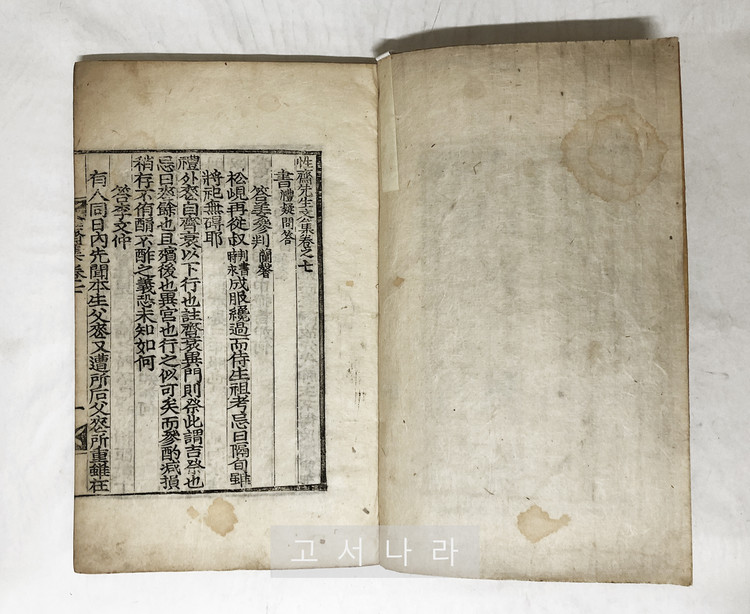 性齋先生文集卷之七
書 禮疑問答
答姜參判 蘭馨
松峴再從叔 判書時永 成服纔過而侍生祖考忌日隔旬雖
將祀無碍耶
禮外喪自齊衰以下行也註齊衰異門則祭此謂吉祭也
忌日喪餘也且殯後也異宮也行之似可矣而參酌减損
稍存不侑酳不酢之義恐未知如何
答李文仲
有人同日內先聞本生父喪又遭所后父喪所重雖在
고서나라